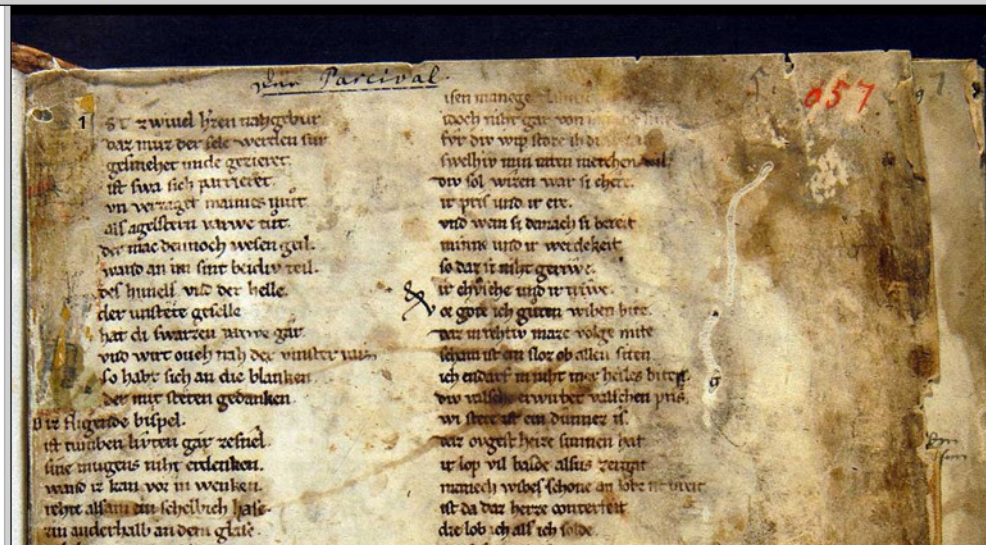 Parcival
057
1
zwiuel h'zen nahgebur
daz muz der sele werden sur
gesmehet unde gezieret.
ist swa sich parrieret
vn verzaget mannes mut.
als agelstern varwe tut.
der mac dennoch wesen geil.
wand an im sint beidiv teil.
des himels vnd der helle.
der unstete geselle
hat di swarzen varwe gar.
vnd wirt ouch nah der vinster
so habt sich an die blanken.
der mit steten gedanken.
fligende bispel.
ist tumben livten gar zesnel
sine mugens niht erdenken.
wand iz kan vor in wenken.
rehte alsam ein schellich hase.
zin anderhalb an dem glase.
isen manege
doch niht gar von
fvr div wip stoze ih
swelhiv min raten merchen wil
div sol wizen war si chere.
ir pris und ir ere.
vnd wem si danach si bereit
minne und ir werdekeit
so daz si niht geriwe.
ir chivsche und ir triwe.
or gote ich guten wiben bite.
daz in rehtiv maze volge mite
scham ist ein sloz ob allen siten
ich endarf in niht mer heiles biten.
div valsche erwirbet valschen pris.
wi stete ist ein dunnez is.
daz ovgest heize sunnen hat
ir lop vil balde alsus zergat
manech wibes schone an lobe ist breit
ist da daz herze conterfeit
die lob ich als ich solde.